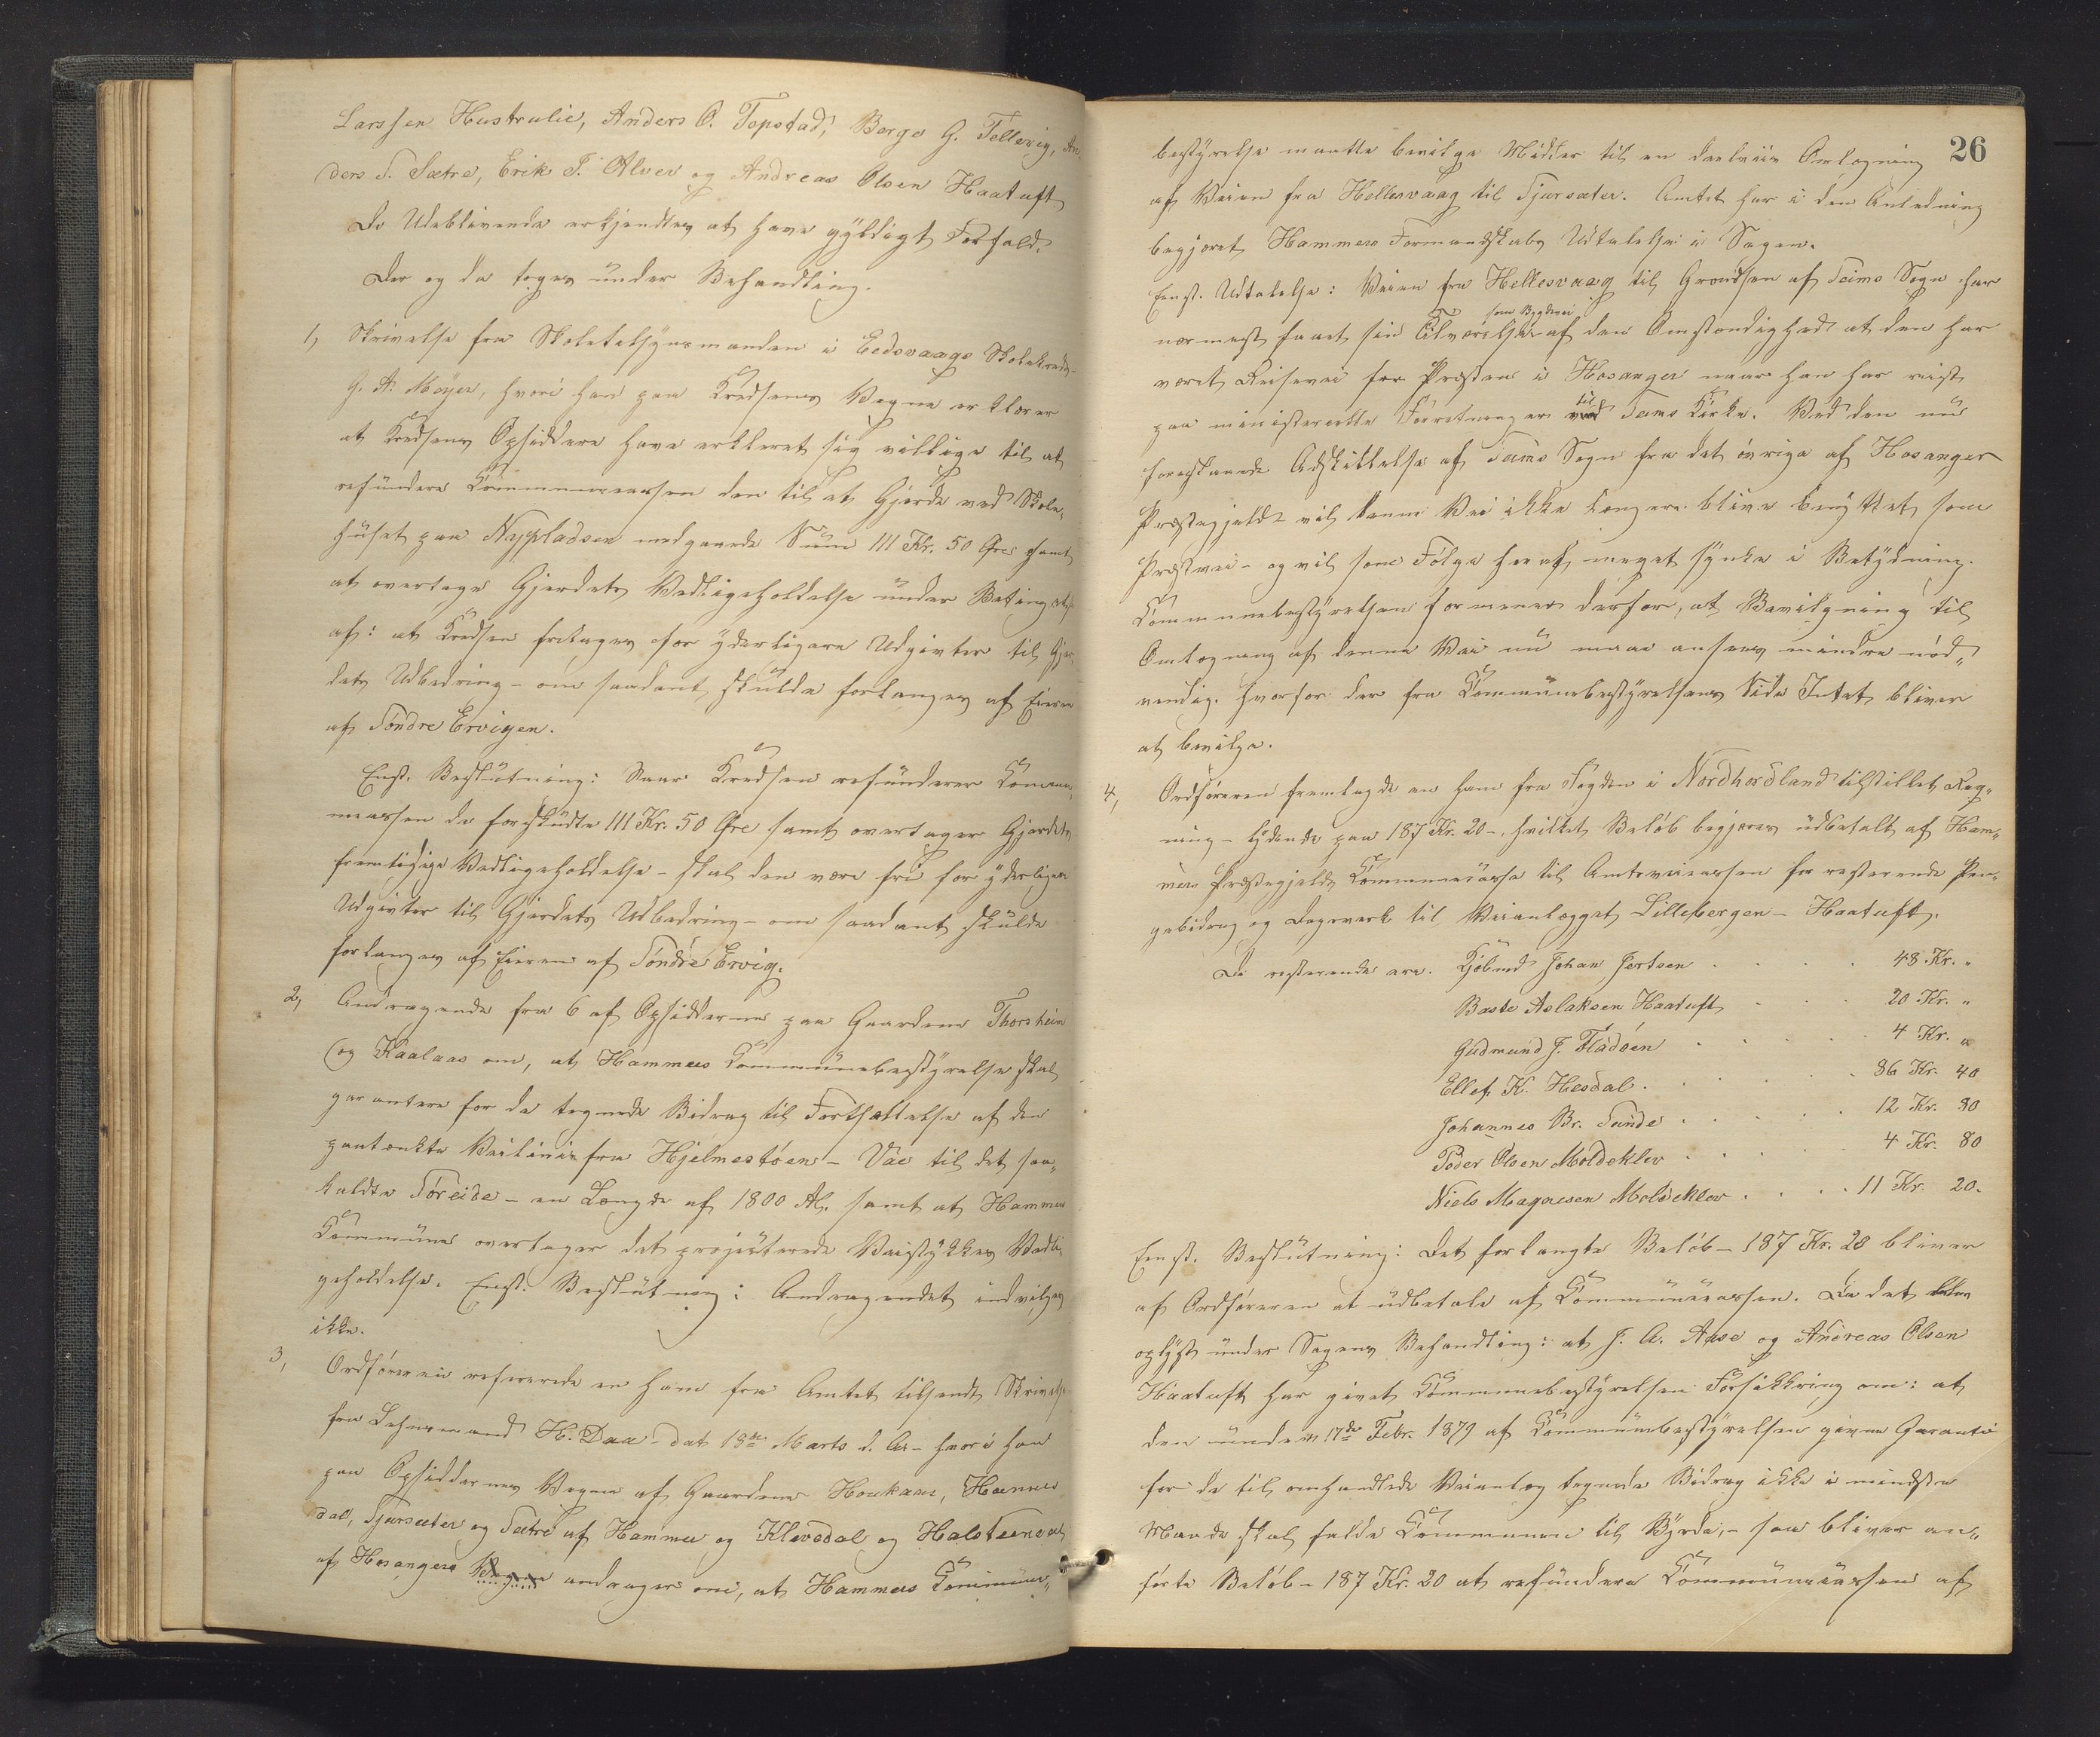 Larssen Hustrulie, Anders O. Topstad, Børge G. Tellevig, An-
ders S. Sætre, Erik I. Alver og Andreas Olsen Haatuft
De Udeblivende erkjendtes at have gyldigt Forfald.
Der og da toges under Behandling.
1, Skrivelse fra Skoletilsynsmanden i Eedsvaags Skolekreds-
G. A. Meyer, hvori han paa Kredsens Vegne erklærer
at Kredsens Opsiddere have erklæret sig villige til at
refundere Communecassen den til et Gjerde ved Skole-
huset paa Nypladsen medgaaede Sum 111 Kr. 50 Øre samt
at overtage Gjerdets Vedligeholdelse under Betingelse
af: at Kredsen fritages for yderligere Udgivter til Gjer-
dets Udbedring - om saadant skulde forlanges af Eieren
af Søndre Ervigen.
Enst. Beslutning: Naar Kredsen refunderer Commu-
necassen de forskudte 111 Kr. 50 Øre samt overtager Gjerdets
fremtidige Vedligeholdelse - skal den være fri for yderligere
Udgivter til Gjerdets Udbedring - om saadant skulde
forlanges af Eieren af Søndre Ervig.
2, Andragende fra 6 af Opsidderne paa Gaardene Thorsheim
og Kaalaas om, at Hammers Communebestyrelse skal
garantere for de tegnede Bidrag til Fortsættelse af den
paatænkte Veilinie fra Hjelmestøen - Vae til det saa-
kaldte Søreide - en Længde af 1800 Al. samt at Hammers
Commune overtager det projecterede Veistykkes Vedli-
geholdelse. Enst. Beslutning: Andragendet indvilges
ikke.
3, Ordføreren refererede en ham fra Amtet tilsendt Skrivelse
fra Lehnsmand H. Daa - dat 18de Marts d. Ar - hvori han
paa Opsiddernes Vegne af Gaardene Houkaas, Hannis
dal, Tjursæter og Sætre af Hammer og Klevedal og Halsteensdal
af Hosangers andrager om, at Hammers Commune-
26
bestyrelse maatte bevilge Midler til en deelviis Omlægning
af Veien fra Hellesvaag til Tjursæter. Amtet har i den Anledning
begjæret Hammers Formandskabs Udtalelse i Sagen.
Enst. Udtalelse: Veien fra Hellesvaag til Grændsen af Seims Sogn har
som Bygdevei
nærmest faaet sin Tilværelse af den Omstændighed at den har
været Reisevei for Præsten i Hosanger naar han har reist
til
paa ministerielle Forretninger ved Seims Kirke. Ved den nu
forestaaende Adskillelse af Seims Sogn fra det øvrige af Hosanger
Præstegjeld vil denne Vei ikke længere blive benyttet som
Præstevei - og vil som Følge heraf meget synke i Betydning.
Communebestyrelsen formener derfor, at Bevilgning til
Omlægning af denne Vei nu maa ansees mindre nød-
vendig. hvorfor der fra Communebestyrelsens Side Intet bliver
at bevilge.
4, Ordføreren fremlagde en ham fra Fogden i Nordhordland tilstillet Reg-
ning - lydende paa 187 Kr. 20 -, hvilket Beløb begjæres udbetalt af Ham-
mers Præstegjelds Communecasse til Amtsveicassen for resterende Pen-
gebidrag og Dagsværk til Veianlægget Lillebergen - Haatuft.
De resterende ere. Kjøbmd Johan Jertsen . . . . 48 Kr. "
Baste Aslaksen Haatuft . . . 20 Kr. "
Gudmund J. Fladøen . . . . . 4 Kr. "
Ellef K. Hesdal . . . . . 86 Kr. 40
Johannes Br. Tunde . . . . . 12 Kr. 80
Peder Olsen Moldeklev . . . . . 4 Kr. 80
Niels Magnesen Moldeklev . . . . 11 Kr. 20.
Eenst. Beslutning: Det forlangte Beløb - 187 Kr. 20 bliver
af Ordføreren at udbetale af Communecassen. Da det blev
oplyst under Sagens Behandling: at J. A. Aase og Andreas Olsen
Haatuft har givet Communebestyrelsen Forsikkring om: at
den under 17de Febr. 1879 af Communebestyrelsen givne Garanti
for de til omhandlede Veianlæg tegnede Bidrag ikke i mindste
Maade skal falde Communen til Byrde, - saa bliver an-
førte Beløb - 187 Kr. 20 at refundere Communecassen af